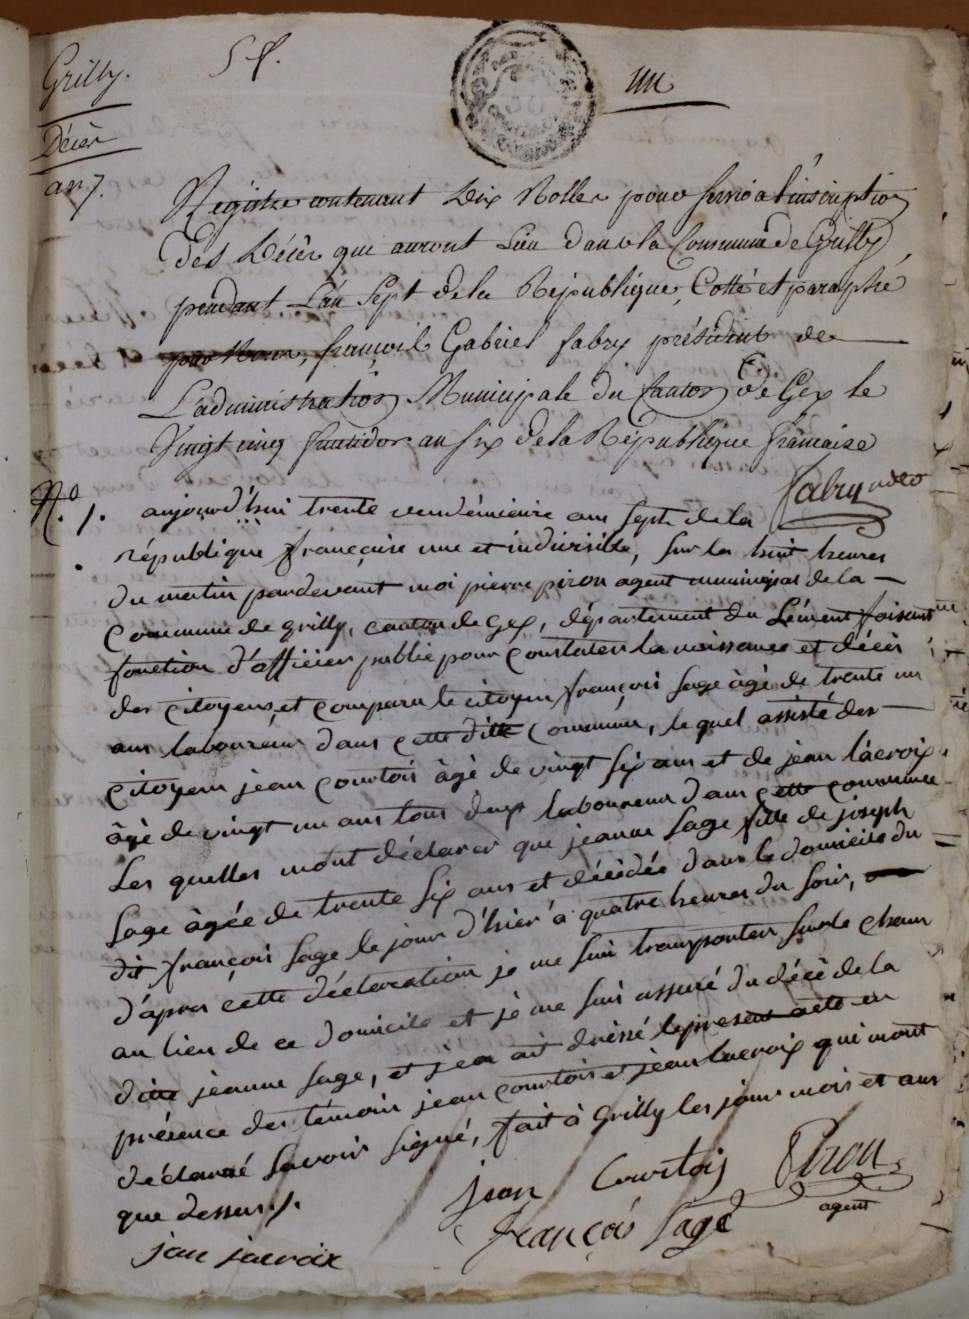 Grilly.
5 f.
un
Décès
an 7.
Registre contenant dix Rolles pour servir a l'inscription
des décès que auront Lieu dans la Commune de Grilly
pendant L'an Sept de la République, Cotté et paraphé
par Nous, françois Gabriel fabry président de
L'administration Municipale du Canton de Gex le
Vingt cinq fructidor an six de la République francaise
fabry
N.º 1. aujourd'hui trente vendémieire ans sept de la
république françaisse une et indivisible, sur les huit heures
du matin pardevant moi pierre piron agent municipal de la
Commune de grilly, canton de gex, département du Lément faisant
fonction d'officier public pour constater la naissance et décès
des citoyens, et comparu le citoyen françois sage âgé de trente un
ans laboureur dans cette ditte commune, lequel assisté des
citoyens jean courtois âgé de vingt six ans et de jean lácroix
âgé de vingt un ans tous deux laboureur dans cette commune
Les quelles mont déclarer que jeanne sage fille de joseph
sage âgée de trente six ans et décédée dans le domicile du
dit françois sage le jour d'hier à quatre heures du soir,
d'áprés cette déclaration je me suis transporter sur le cham
au lieu de ce domicile et je me suis assuré du décè de la
ditte jeanne sage, et jen ait dressé le present acte en
présence des témoins jean courtois et jean lacroix qui mont
déclarré savoir signé, fait à Grilly les jour mois et ans
que dessus./.
jean Courtois Piron
agent
françois sage
jan jacroix